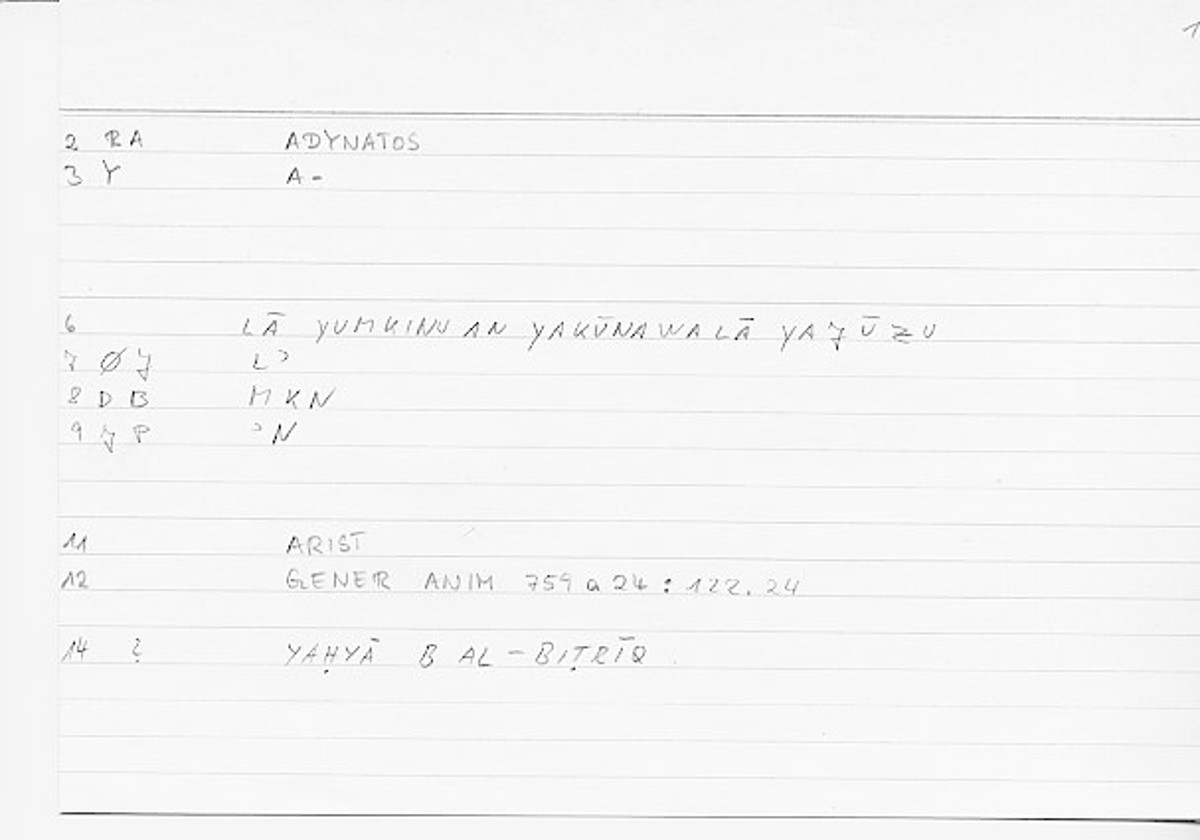 1
2 RA ADYNATOS
3 Y A-
6 LĀ YUMKINU AN YAKŪNAWALĀ YAJŪZU
7 ØJ Lʾ
8 DB MKN
9 JP ʾN
11 ARIST
12 GENER ANIM 759 a 24 : 122.24
14 ? YAḤYĀ B AL-BIṬRĪQ